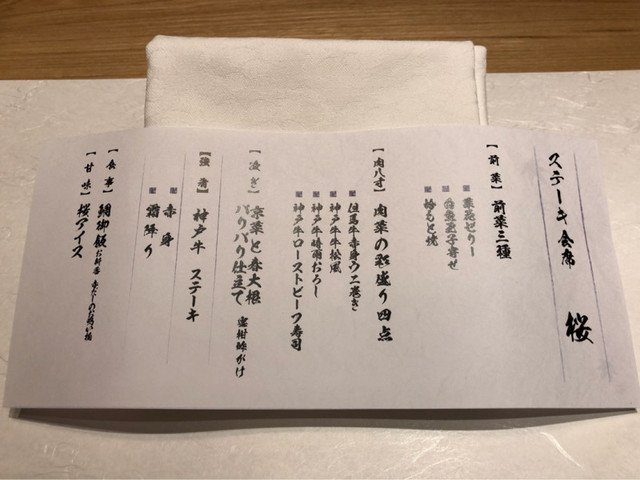 ステーキ会席 桜
【前菜】前菜三種
▣ 菜花ゼリー
▣ 白魚玉子寄せ
▣ 蛤もと焼
【肉八寸】肉菜の彩盛り四点
▣ 但馬牛赤身ウニ巻き
▣ 神戸牛松風
▣ 神戸牛時雨おろし
▣ 神戸牛ローストビーフ寿司
【凌ぎ】京菜と春大根
パリパリ仕立て 蜜柑酢がけ
【強肴】神戸牛 ステーキ
▣ 赤身
▣ 霜降り
【食事】鯛御飯 お新香 赤だしのお吸い物
【甘味】桜アイス